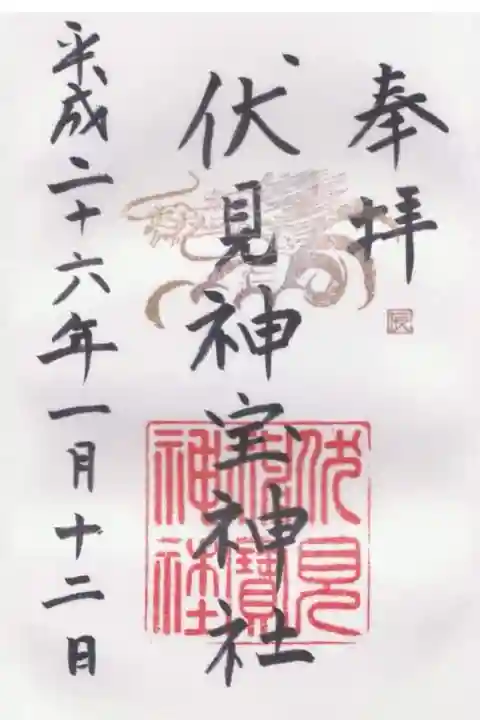 奉拝
伏見神宝神社
伏見
神寶
神社
平成二十六年一月十二日